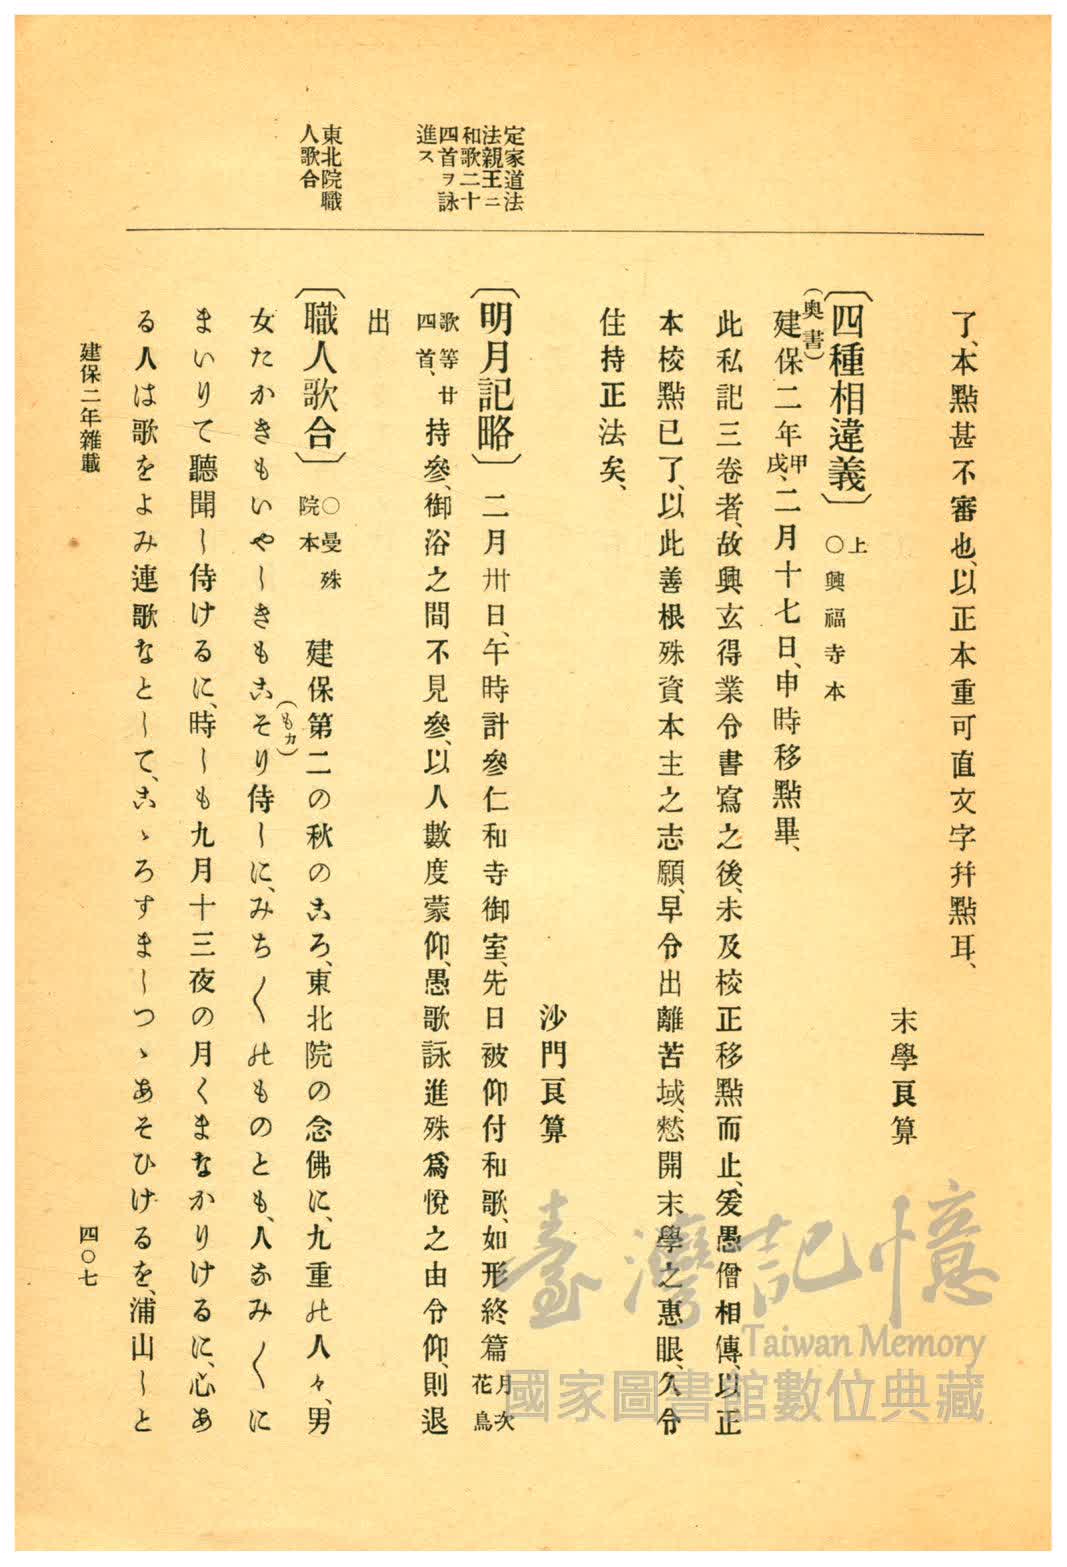 定家道法
法親王ニ
和歌二十
四首ヲ詠
進ス
東北院職
人歌合
了、本點甚不審也、以正本重可直文字幷點耳、
末學良算
〔四種相違義〕上○興福寺本
(奥書)
建保二年甲戌、二月十七日、申時移點畢、
此私記三卷者、故興玄得業令書寫之後、未及校正移點而止、爰愚僧相傳、以正
本校點已了、以此善根殊資本主之志願、早令出離苦域、憖開末學之惠眼、久令
住持正法矣、
沙門良算
〔明月記略〕二月卅日、午時計參仁和寺御室、先日被仰付和歌、如形終篇月次花鳥
歌等廿四首、持參、御浴之間不見參、以人數度蒙仰、愚歌詠進殊爲悅之由令仰、則退
出
〔職人歌合〕○曼殊院本 建保第二の秋のころ、東北院の念佛に、九重の人々、男
女たかきもいやしきもこそり(もカ)侍しに、みち〱のものとも、人なみ〱に
まいりて聽聞し侍けるに、時しも九月十三夜の月くまなかりけるに、心あ
る人は歌をよみ連歌なとして、こゝろすましつゝあそひけるを、浦山しと
建保二年雜載
四〇七
臺灣記憶
Taiwan Memory
國家圖書館數位典藏